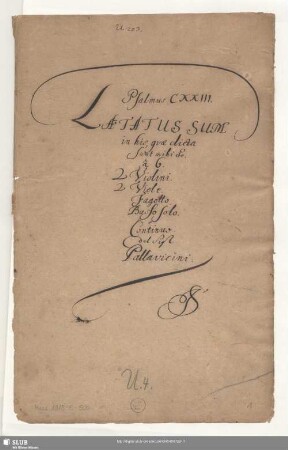 Psalmus CXXIII.
LÆTATUS SUM
in his quæ dicta
sunt mihi
à 6.
2 Violini.
2 Viole
Fagotto
Basso solo.
Continuo
del Sigr
Pallavicini.
U.4.
SLUB